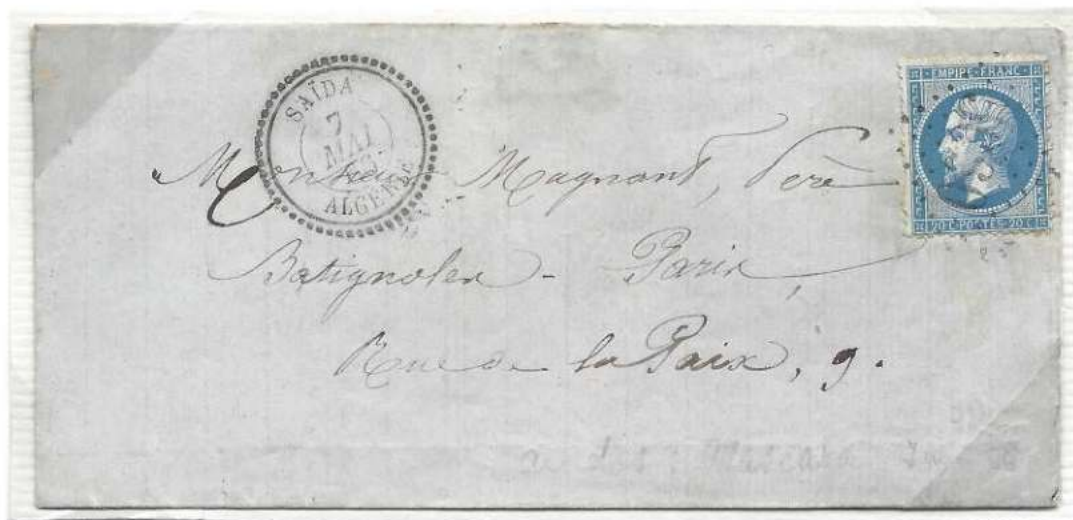 SAÏDA
7
MAI
63
ALGÉRIE
EMPIRE FRANC
20 C POSTES 20 C
Monsieur Magnant, Père
Batignoles - Paris,
Rue de la Paix, 9.
Mascara